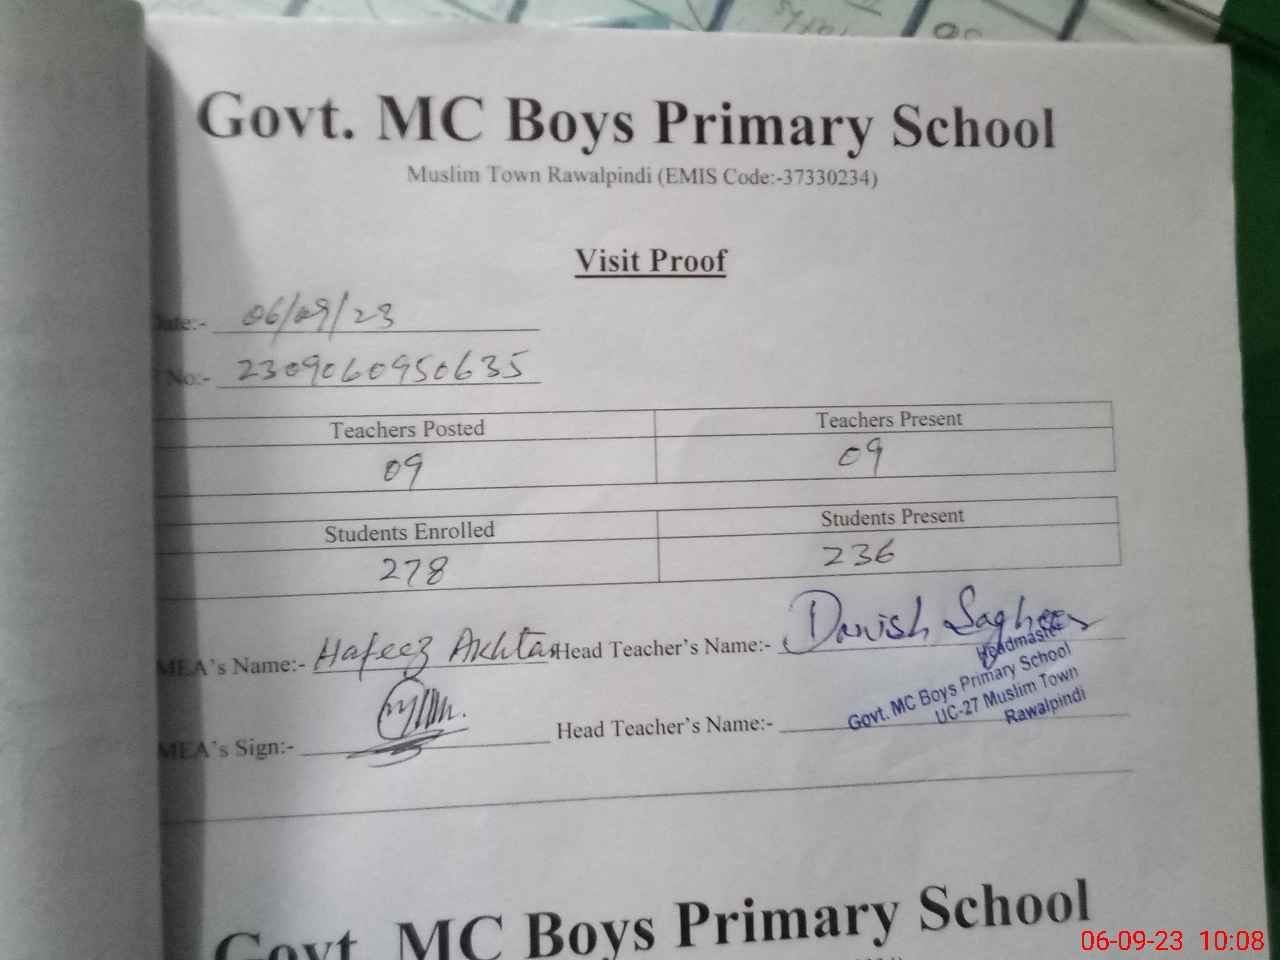 Govt. MC Boys Primary School
Muslim Town Rawalpindi (EMIS Code:-37330234)
Visit Proof
Date:- 06/09/23
No:- 2309060950635
Teachers Posted Teachers Present
09 09
Students Enrolled Students Present
278 236
MEA's Name:- Hafeez Akhtar Head Teacher's Name:- Danish Sagheer
Headmaster
Govt. MC Boys Primary School
UC-27 Muslim Town
Rawalpindi
MEA's Sign:- Head Teacher's Name:-
Govt. MC Boys Primary School
06-09-23 10:08